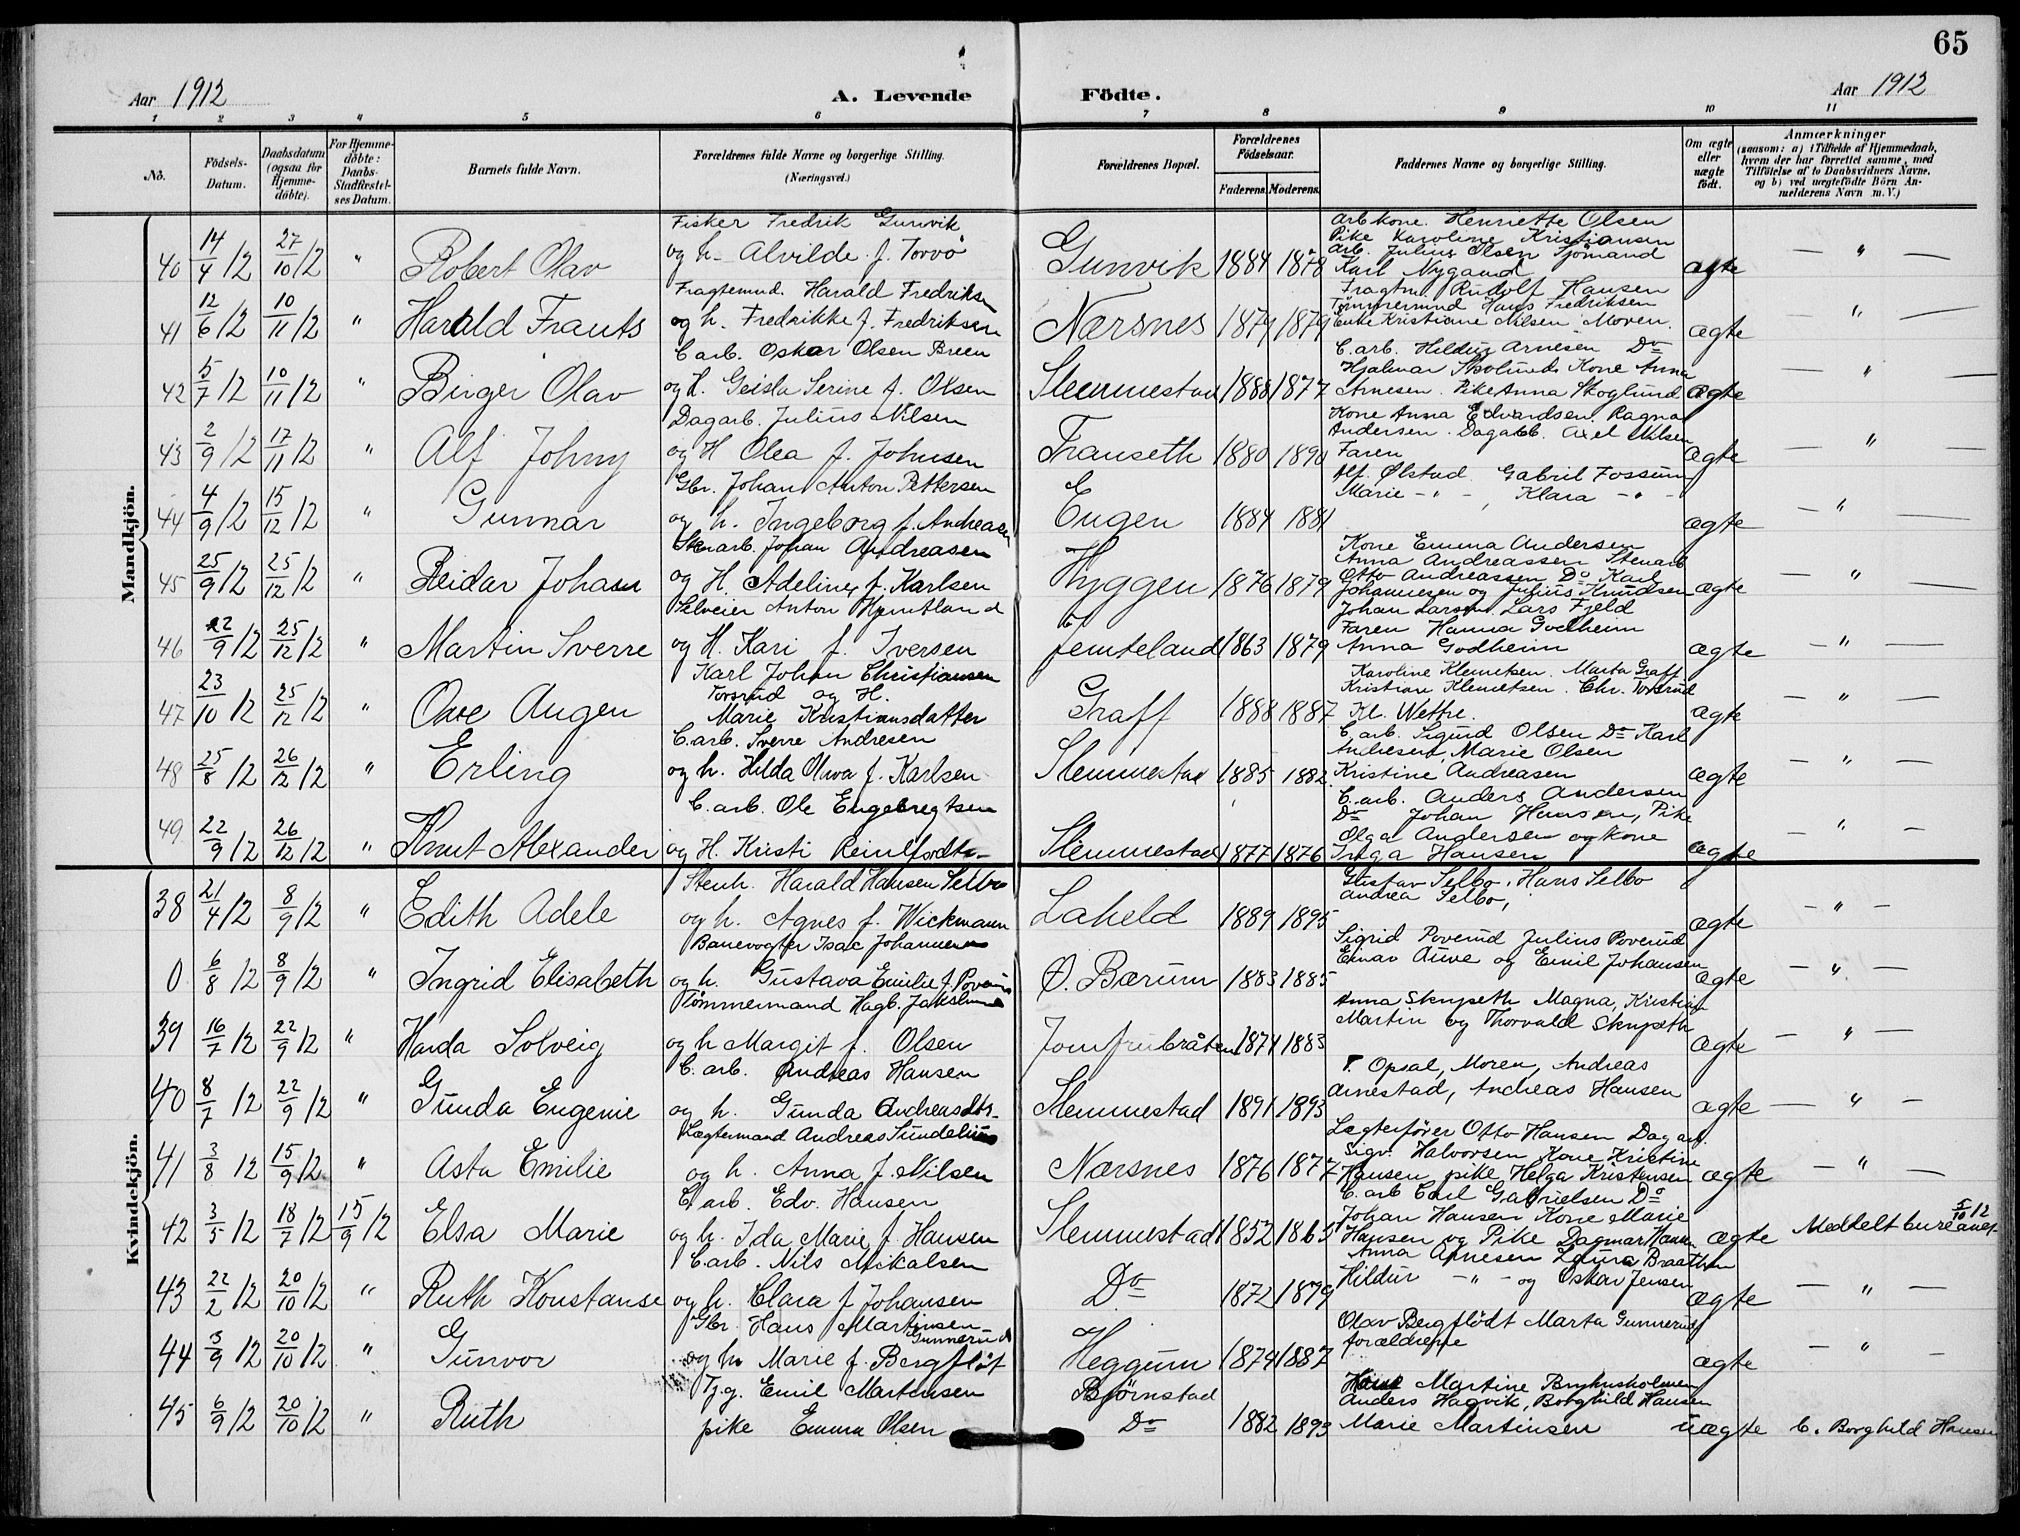 65
Aar 1912
A. Levende Födte.
Aar 1912
1 2 3 4 5 6 7 8 9 10 11
No.
Födsels-Datum.
Daabsdatum (ogsaa for Hjemme-döbte).
For Hjemme-döbte: Daabs-Stadfæstel-ses Datum.
Barnets fulde Navn.
Forældrenes fulde Navne og borgerlige Stilling. (Næringsvei.)
Forældrenes Bopæl.
Forældrenes Födselsaar.
Faderens. Moderens.
Faddernes Navne og borgerlige Stilling.
Om ægte eller uægte födt.
Anmærkninger
(saasom: a) i Tilfælde af Hjemmedaab, hvem der har forrettet samme, med Tilföielse af to Daabsvidners Navne, og b) ved uægtefödte Börn An-melderens Navn m. V.)
Mandkjön.
40 14/4 12 27/10 12 " Robert Olav
Fisker Fredrik Gunvik
og h. Alvilde f. Torvö
Gunvik 1884 1878
Arb kone Henriette Olsen
Pike Karoline Kristiansen
Arb. Julius Olsen Sjömand
Karl Nygaard
ægte — " —
41 12/6 12 10/11 12 " Harald Frants
Fragtemd. Harald Fredriksen
og h. Fredrikke f. Fredriksen
Nærsnes 1879 1879
Fragtm. Rudolf Hansen
Tömmermnd Hans Fredriksen
Enke Kristiane Nilsen Moren.
ægte — " —
42 5/7 12 10/11 12 " Birger Olav
C. arb. Oskar Olsen Breen
og H. Geisla Serine f. Olsen
Slemmestad 1888 1877
C. arb. Hildur Arnesen Do
Hjalmar Skolunds Kone Anna
Arnesen. Pike Anna Skoglund
ægte " —
43 2/9 12 17/11 12 " Alf Johny
Dagarb. Julius Nilsen
og H Olea f. Johnsen
Franseth 1880 1890
Kone Anna Edvardsen. Ragna
Andersen. Dagarb. Axel Nilsen
Faren
ægte — " —
44 4/9 12 15/12 12 " Gunnar
Gbr. Johan Anton Pettersen
og h. Ingeborg f. Andreasen
Eugen 1884 1881
Alf. Ølstad Gabril Fossum
Marie - " - , Klara - " -
ægte — " —
45 25/9 12 25/12 12 " Reidar Johan
Stenarb. Johan Andreasen
og H. Adeline f. Karlsen
Hyggen 1876 1879
Kone Emma Andersen
Anna Andreassen Stenarb
Otto Andreassen Do Karl
Johannesen og Julius Knudsen
ægte — " —
46 22/9 12 25/12 12 " Martin Sverre
Selveier Anton
og H. Kari f. Iversen
Jemteland 1863 1879
Johan Larsen. Lars Fjeld
Faren Hanna Godheim
Anna Godheim
ægte — " —
47 23/10 12 25/12 12 " Ove Augen
Karl Johan Christiansen
Torsrud og H.
Marie Kristiansdatter
Graff 1888 1887
Karoline Klemetsen. Marta Graff
Kristian Klemetsen. Chr. Torsrud
Kl. Wettre.
ægte — " —
48 25/8 12 26/12 12 " Erling
C. arb. Sverre Andresen
og h. Hilda Olava f. Karlsen
Slemmestad 1885 1882
C. arb. Sigurd Olsen Do Karl
Andresen, Marie Olsen
Kristine Andreasen
ægte — " —
49 22/9 12 26/12 12 " Knut Alexander
C. arb. Ole Engebregtsen
og H. Kristi
Slemmestad 1877 1876
C. arb. Anders Andersen
Do Johan Hansen, Pike
Olga Andersen og kone
Inga Hansen
ægte — " —
Kvindekjön.
38 21/4 12 8/9 12 " Edith Adele
Stenh. Harald Hansen Selbo
og h. Agnes f. Wickmann
Laheld 1889 1895
Gustav Selbo, Hans Selbo
Andrea Selbo,
ægte — " —
0 6/8 12 8/9 12 " Ingrid Elisabeth
Banevogter Isac Johannesen
og h. Gustava Emilie f. Poverud
Ø. Bærum 1883 1885
Sigrid Poverud Julius Poverud
Einar Auve og Emil Johansen
ægte — " —
39 16/7 12 22/9 12 " Harda Solveig
Tömmermand Hagb. Jakobsen
og h Margit f. Olsen
Jomfrubråten 1874 1883
Anna Skrypeth Magna, Kristian
Martin og Thorvald Skrypeth
ægte — " —
40 8/7 12 22/9 12 " Gunda Eugenie
C. arb. Andreas Hansen
og h. Gunda Andreasdtr.
Slemmestad 1891 1893
T. Opsal, Moren, Andreas
Arnestad, Andreas Hansen
ægte — " —
41 3/8 12 15/9 12 " Asta Emilie
Lægtermand Andreas Sundelius
og h. Anna f. Nilsen
Nærsnes 1876 1877
Lægterförer Otto Hansen Dagarb.
Sigv. Halvorsen Kone Kristine
Hansen pike Helga Kristensen
ægte — " —
42 3/5 12 18/7 12 15/9 12 Elsa Marie
C. arb. Edv. Hansen
og h. Ida Marie f. Hansen
Slemmestad 1852 1865
C. arb Carl Gabrielsen Do
Johan Hansen Kone Marie
Hansen og Pike Dagmar Hansen
ægte Meddelt 5/10 12
43 22/2 12 20/10 12 " Ruth Konstanse
C. arb. Nils Mikalsen
og h. Clara f Johansen
Do 1872 1879
Anna Arnesen Laura Braathen
Hildur - " - og Oskar Jensen
ægte — " —
44 5/9 12 20/10 12 " Gunvor
Gbr. Hans Martinsen Gunnerud
og h. Marie f. Bergflöt
Heggum 1874 1887
Olav Bergflödt Marta Gunnerud
forældrene
ægte — " —
45 6/9 12 20/10 12 " Ruth
Tjg. Emil Martinsen
pike Emma Olsen
Björnstad
Do 1882 1893
Martine
Anders Hagvik, Borghild Hansen
Marie Martinsen
uægte C. Borghild Hansen